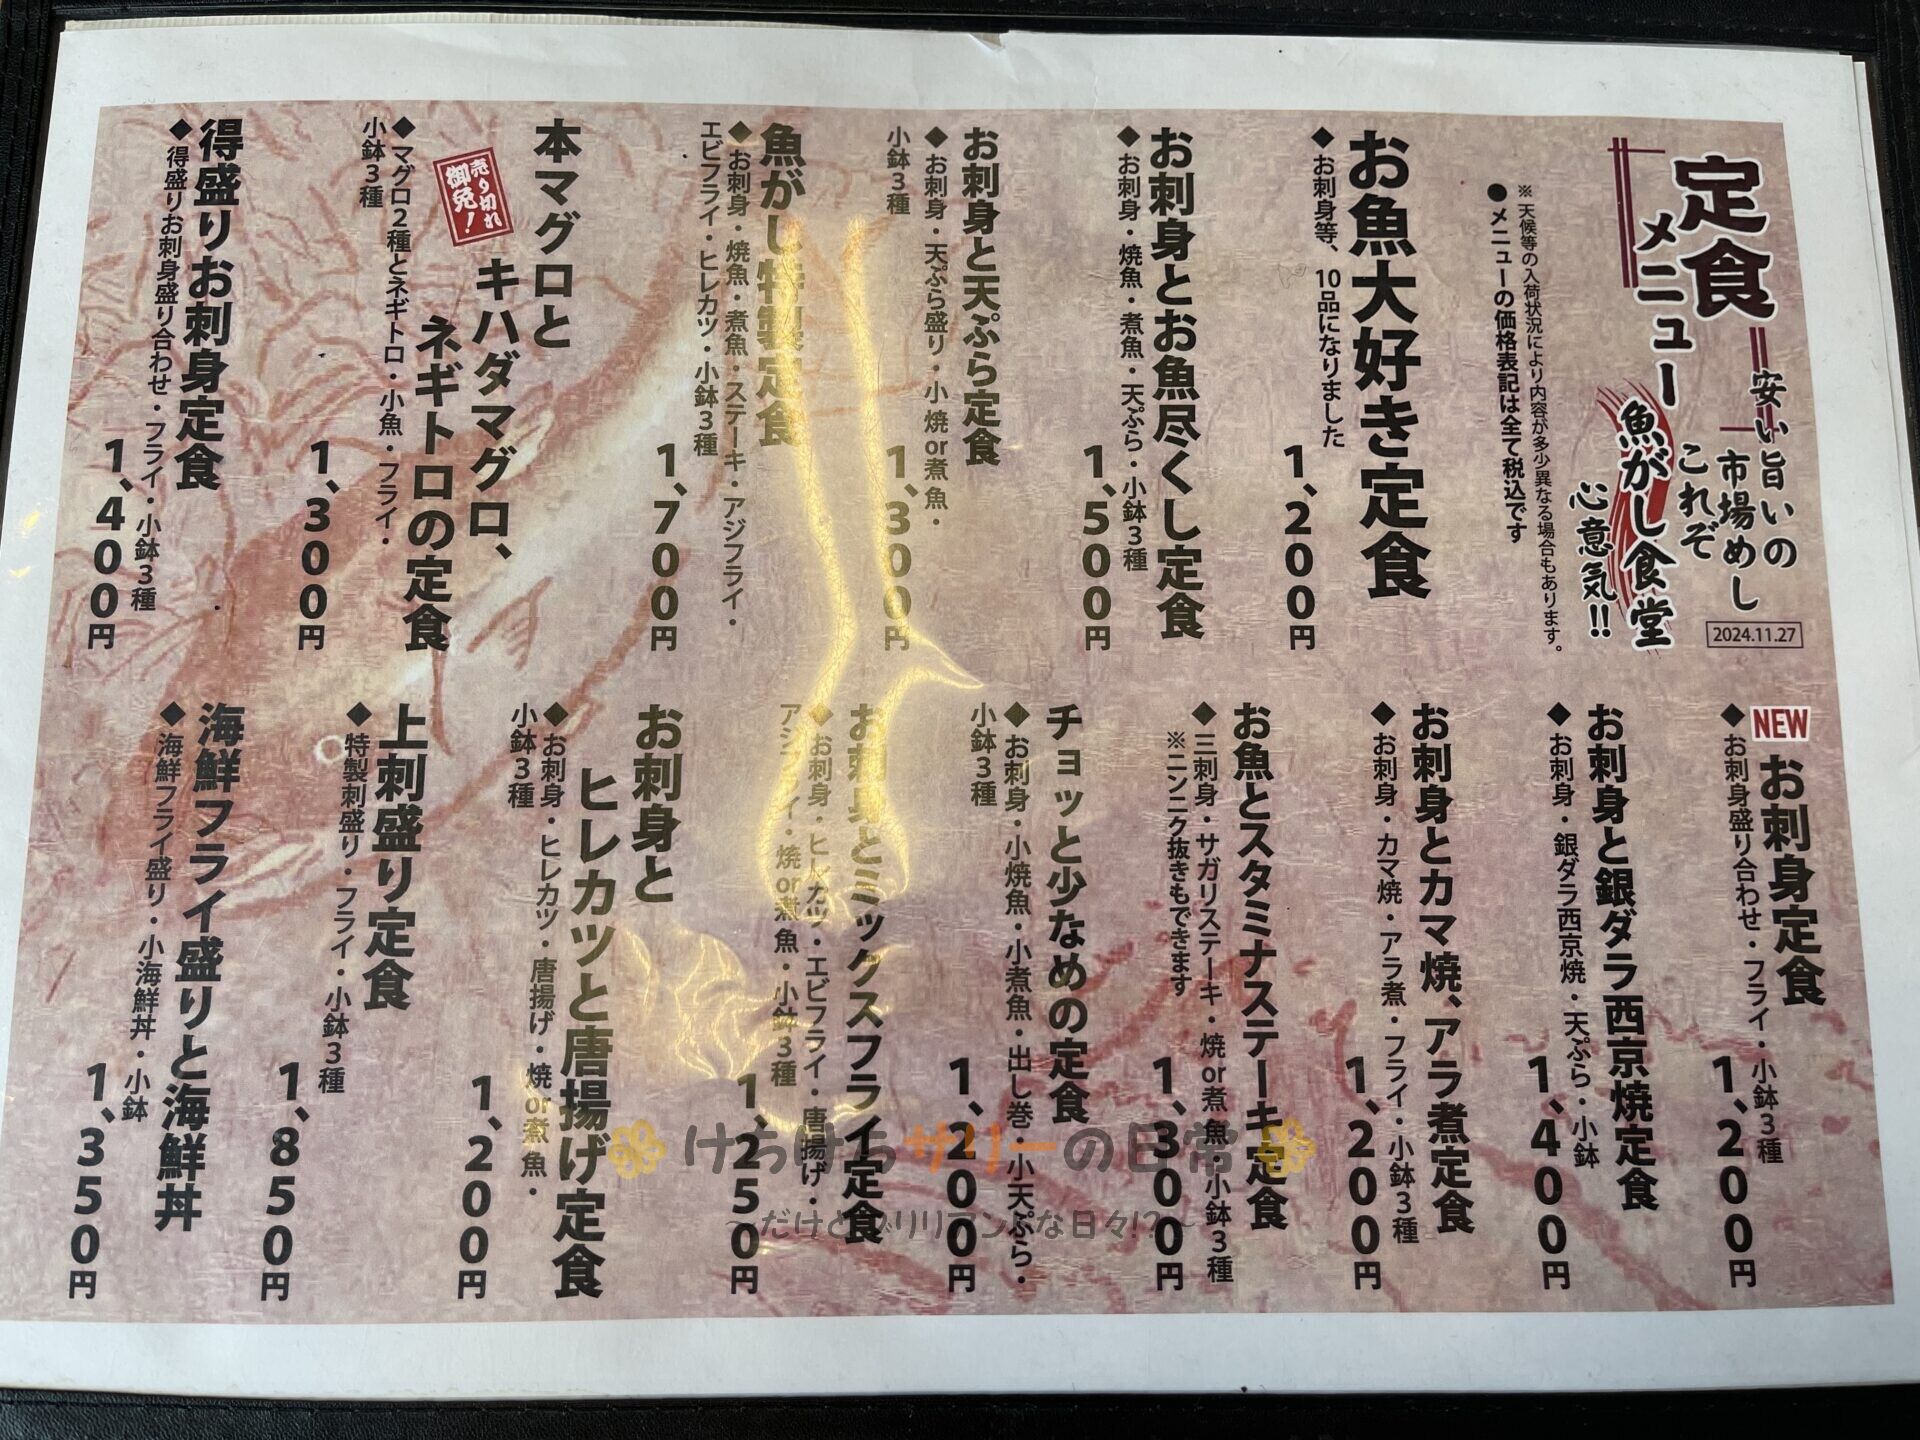 定食
メニュー
安い旨いの
市場めし
これぞ
魚がし食堂
心意気!!
2024.11.27
※天候等の入荷状況により内容が多少異なる場合もあります。
●メニューの価格表記は全て税込です
お魚大好き定食
◆お刺身等、10品になりました
1、200円
お刺身とお魚尽くし定食
◆お刺身・焼魚・煮魚・天ぷら・小鉢3種
1、500円
お刺身と天ぷら定食
◆お刺身・天ぷら盛り・小焼or煮魚・
小鉢3種
1、300円
魚がし特製定食
◆お刺身・焼魚・煮魚・ステーキ・アジフライ・
エビフライ・ヒレカツ・小鉢3種
1、700円
本マグロと
キハダマグロ、
ネギトロの定食
売り切れ
御免!
◆マグロ2種とネギトロ・小魚・フライ・
小鉢3種
1、300円
得盛りお刺身定食
◆得盛りお刺身盛り合わせ・フライ・小鉢3種
1、400円
NEW
お刺身定食
◆お刺身盛り合わせ・フライ・小鉢3種
1、200円
お刺身と銀ダラ西京焼定食
◆お刺身・銀ダラ西京焼・天ぷら・小鉢
1、400円
お刺身とカマ焼、アラ煮定食
◆お刺身・カマ焼・アラ煮・フライ・小鉢3種
1、200円
お魚とスタミナステーキ定食
◆三刺身・サガリステーキ・焼or煮魚・小鉢3種
※ニンニク抜きもできます
1、300円
チョッと少なめの定食
◆お刺身・小焼魚・小煮魚・出し巻・小天ぷら・
小鉢3種
1、200円
お刺身とミックスフライ定食
◆お刺身・ヒレカツ・エビフライ・唐揚げ・
アジフライ・焼or煮魚・小鉢3種
1、250円
お刺身と
ヒレカツと唐揚げ定食
◆お刺身・ヒレカツ・唐揚げ・焼or煮魚・
小鉢3種
1、200円
上刺盛り定食
◆特製刺盛り・フライ・小鉢3種
1、850円
海鮮フライ盛りと海鮮丼
◆海鮮フライ盛り・小海鮮丼・小鉢
1、350円
けらけらサリーの日常